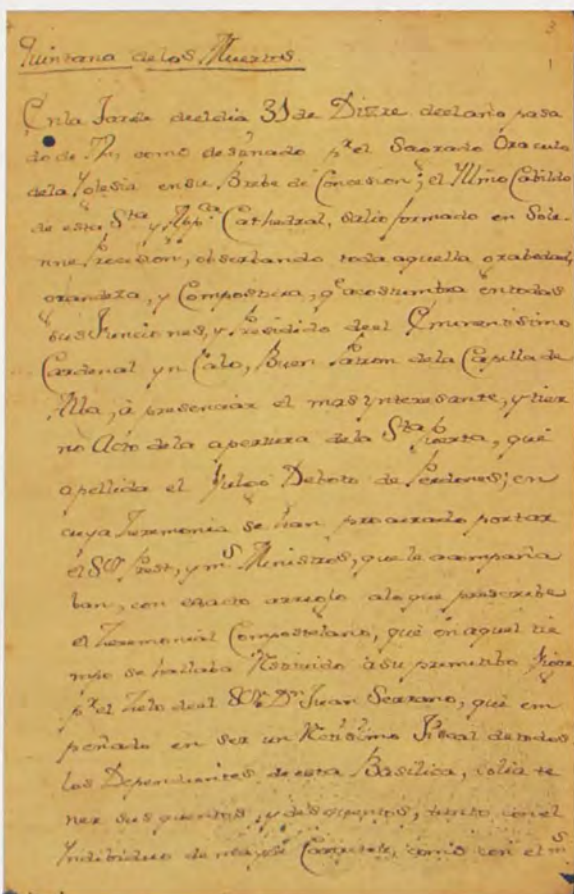 3
1
Quintana de los Muertos.
En la Tarde del dia 31 de Dizre del año pasa
do de como designado pr el Sagrado Oraculo
de la Yglesia en su Brebe de Concesion; el Yllmo Cabildo
de esta Sta y Appca Cathedral, salio formado en Sole-
nne Procesion, observando toda aquella grabedad,
grandeza, y Compostura, qe acostumbra en todas
sus Funciones, y Presidido de el Eminentisimo
Cardenal yn Calo, Buen Patron de la Capilla de
Alba, à presenciar el mas ynteresante, y tier
no Acto de la apertura de la Sta Puerta, que
apellida el Vulgo Deboto de Perdones; en
cuya Zeremonia se han procurado portar
el Sor Prest, y ms Ministros, que le acompaña
ban, con exacto arreglo a lo que prescribe
el Zeremonial Compostelano, que en aquel tie
mpo se hallaba Restituido à su primitibo Vigor
pr el Zelo de el Sor Dn Juan Serrano, que em
peñado en ser un Rectisimo Fiscal de todos
los Dependientes de esta Basilica, solia te
ner sus quentos, y desquentos, tanto con el
Yndibiduo de mayor Caracter, como con el ms